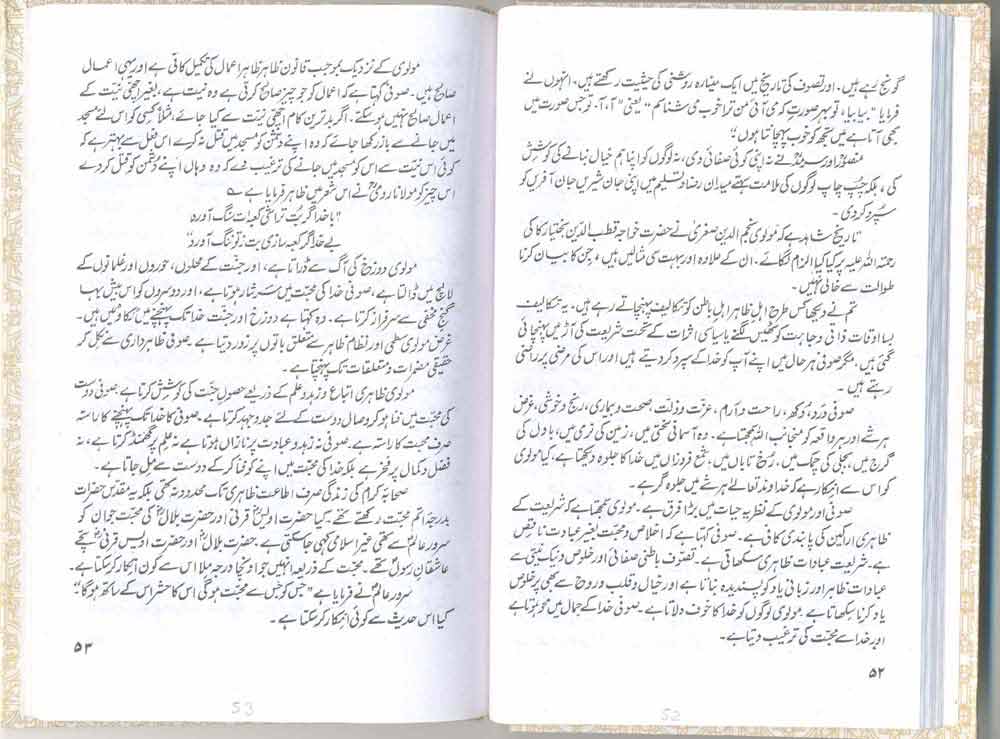 گونج رہے ہیں۔ اور تصوف کی تاریخ میں ایک مینارہ روشنی کی حیثیت رکھتے ہیں۔ انہوں نے
فرمایا "بیا بیا، تو بہر صورت کہ می آئی من ترا خوب می شناسم" یعنی "آ، آ۔ تو جس صورت میں
بھی آتا ہے میں تجھ کو خوب پہچانتا ہوں"۔
منصورؒ اور سرمدؒ نے نہ اپنی کوئی صفائی دی، نہ لوگوں کو اپنا ہم خیال بنانے کی کوشش
کی، بلکہ چپ چاپ لوگوں کی ملامت سہتے میدان رضا و تسلیم میں اپنی جان شیریں جان آفریں کو
سپرد کر دی۔
تاریخ شاہد ہے کہ مولوی نجم الدین صغریٰ نے حضرت خواجہ قطب الدین بختیار کاکی
رحمتہ اللہ علیہ پر کیا کیا الزام لگائے۔ ان کے علاوہ اور بہت سی مثالیں ہیں، جن کا بیان کرنا
طوالت سے خالی نہیں۔
تم نے دیکھا کس طرح اہل ظاہر اہل باطن کو تکالیف پہنچاتے رہے ہیں۔ یہ تکالیف
بسا اوقات ذاتی وجاہت کو ٹھیس لگنے یا سیاسی اثرات کے تحت شریعت کی آڑ میں پہنچائی
گئی ہیں، مگر صوفی ہر حال میں اپنے آپ کو خدا کے سپرد کر دیتے ہیں اور اس کی مرضی پر راضی
رہتے ہیں۔
صوفی درد، دکھ، راحت و آرام، عزت و ذلت، صحت و بیماری، رنج و خوشی، غرض
ہر شے اور ہر واقعہ کو منجانب اللہ سمجھتا ہے۔ وہ آسمانی سختی میں، زمین کی نرمی میں، بادل کی
گرج میں، بجلی کی چمک میں، رخِ تاباں میں، شمع فروزاں میں خدا کا جلوہ دیکھتا ہے، کیا مولوی
کو اس سے انکار ہے کہ خداوند تعالےٰ ہر شے میں جلوہ گر ہے۔
صوفی اور مولوی کے نظریہ حیات میں بڑا فرق ہے۔ مولوی سمجھتا ہے کہ شریعت کے
ظاہری اراکین کی پابندی کافی ہے۔ صوفی کہتا ہے کہ اخلاص و محبت بغیر عبادت ناقص
ہے۔ شریعت عبادات ظاہری سکھاتی ہے۔ تصوف باطنی صفائی اور خلوص و نیک نیتی سے
عبادات ظاہر اور زبانی یاد کو پسندیدہ بناتا ہے اور خیال و قلب و روح سے بھی پرخلوص
یاد کرنا سکھاتا ہے۔ مولوی لوگوں کو خدا کا خوف دلاتا ہے۔ صوفی خدا کے جمال میں محو ہوتا ہے
اور خدا سے محبت کی ترغیب دیتا ہے۔
۵۲
52
مولوی کے نزدیک بموجب قانون ظاہر ظاہر اعمال کی تکمیل کافی ہے اور یہی اعمال
صالح ہیں۔ صوفی کہتا ہے کہ اعمال کو جو چیز صالح کرتی ہے وہ نیت ہے، بغیر اچھی نیت کے
اعمال صالح نہیں ہو سکتے۔ اگر بدترین کام اچھی نیت سے کیا جائے، مثلاً کسی کو اس لئے مسجد
میں جانے سے باز رکھا جائے کہ وہ اپنے دشمن کو مسجد میں قتل نہ کرے اس فعل سے بہتر ہے کہ
کوئی اس نیت سے اس کو مسجد میں جانے کی ترغیب دے کہ وہ وہاں اپنے دشمن کو قتل کر دے
اس چیز کو مولانا رومیؒ نے اس شعر میں ظاہر فرمایا ہے ؎
"با خدا گر بت تراشی کعبہ ات سنگ آورد
بے خدا گر کعبہ سازی بت ز تو ننگ آورد"
مولوی دوزخ کی آگ سے ڈراتا ہے، اور جنت کے محلوں، حوروں اور غلمانوں کے
لالچ میں ڈالتا ہے، صوفی خدا کی محبت میں سرشار ہوتا ہے، اور دوسروں کو اس بیش بہا
گنجِ مخفی سے سرفراز کرتا ہے۔ وہ کہتا ہے دوزخ اور جنت خدا تک پہنچنے میں رکاوٹیں ہیں۔
غرض مولوی سطحی اور نظام ظاہر سے متعلق باتوں پر زور دیتا ہے۔ صوفی ظاہر داری سے نکل کر
حقیقی مضمرات و متعلقات تک پہنچتا ہے۔
مولوی ظاہری اتباع و زہد و علم کے ذریعے حصول جنت کی کوشش کرتا ہے، صوفی دوست
کی محبت میں فنا ہو کر وصال دوست کے لئے جدوجہد کرتا ہے۔ صوفی کا خدا تک پہنچنے کا راستہ
صرف محبت کا راستہ ہے۔ صوفی نہ زہد و عبادت پر نازاں ہوتا ہے نہ علم پر گھمنڈ کرتا ہے، نہ
فضل و کمال پر فخر ہے بلکہ خدا کی محبت میں اپنے کو فنا کر کے دوست سے مل جاتا ہے۔
صحابہ کرام کی زندگی صرف اطاعت ظاہری تک محدود نہ تھی بلکہ یہ مقدس حضرات
بدرجہ اتم محبت رکھتے تھے۔ کیا حضرت اویسؓ قرنی اور حضرت بلالؓ کی محبت جو ان کو
سرور عالمؐ سے تھی غیر اسلامی کہی جا سکتی ہے۔ حضرت بلالؓ اور حضرت اویس قرنیؓ سچے
عاشقانِ رسولؐ تھے۔ محبت کے ذریعہ انہیں جو اونچا درجہ ملا اس سے کون انکار کر سکتا ہے۔
سرور عالمؐ نے فرمایا ہے "جس کو جس سے محبت ہوگی اس کا حشر اس کے ساتھ ہوگا"
کیا اس حدیث سے کوئی انکار کر سکتا ہے۔
۵۳
53